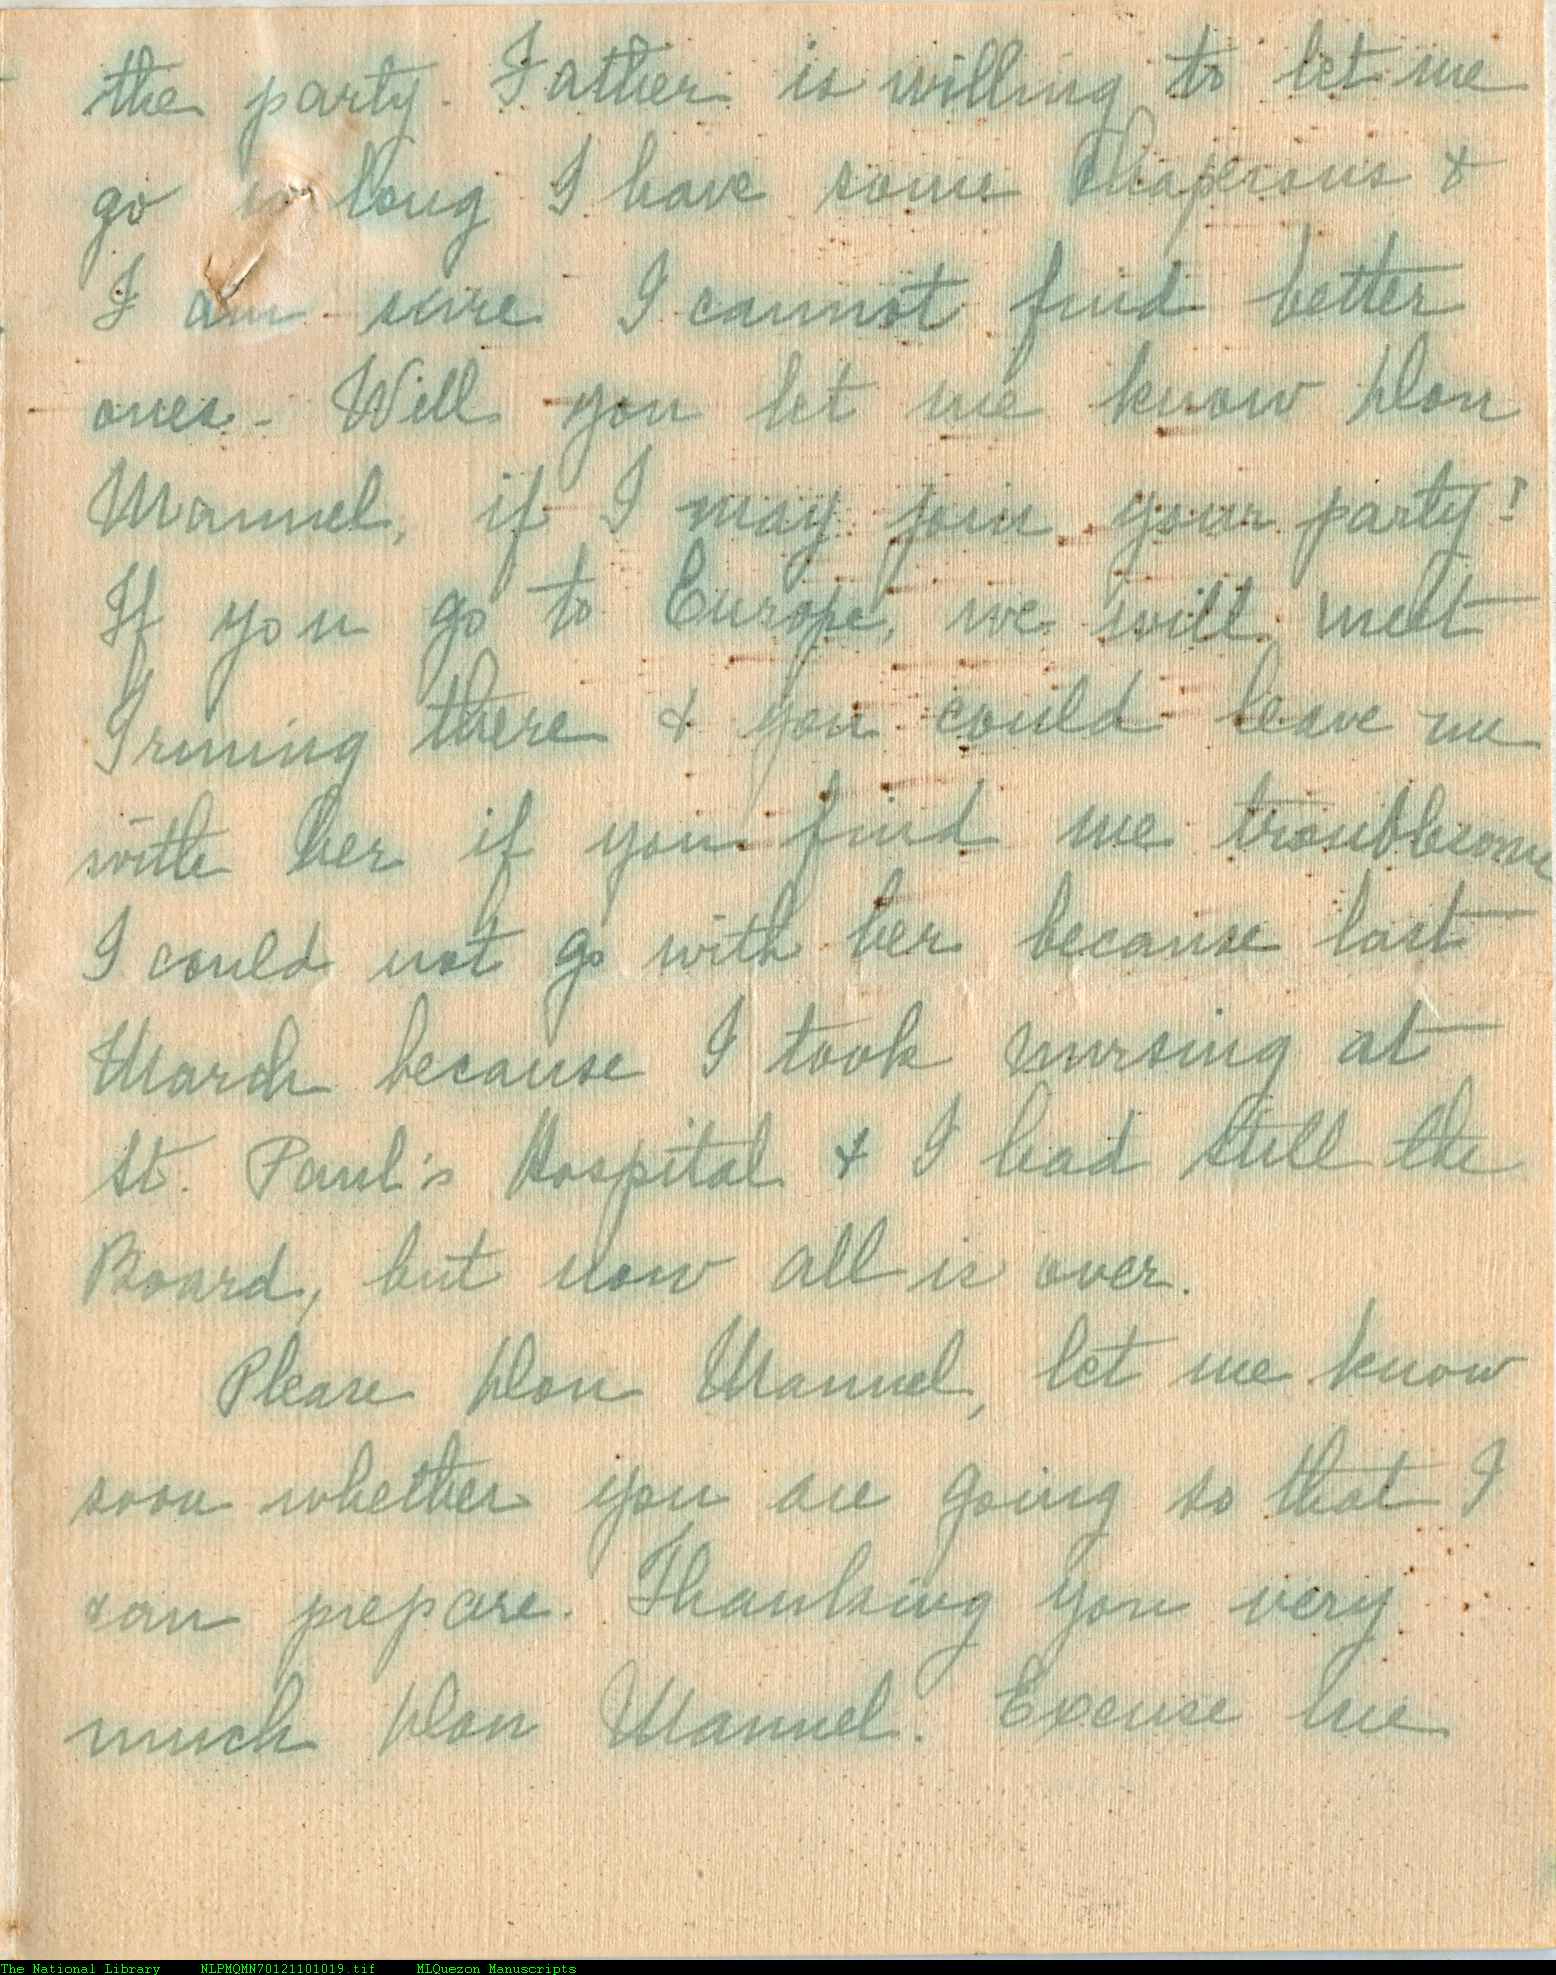 the party. Father is willing to let me
go so long I have some chaperons &
I am sure I cannot find better
ones. Will you let me know Don
Manuel, if I may join your party?
If you go to Europe, we will meet
there & you could leave me
with her if you find me troublesome
I could not go with her because last
March because I took nursing at
St. Paul's Hospital & I had still the
Board, but now all is over.
Please Don Manuel, let me know
soon whether you are going so that I
can prepare. Thanking you very
much Don Manuel. Excuse me
The National Library NLPMQMN70121101019.tif MLQuezon Manuscripts